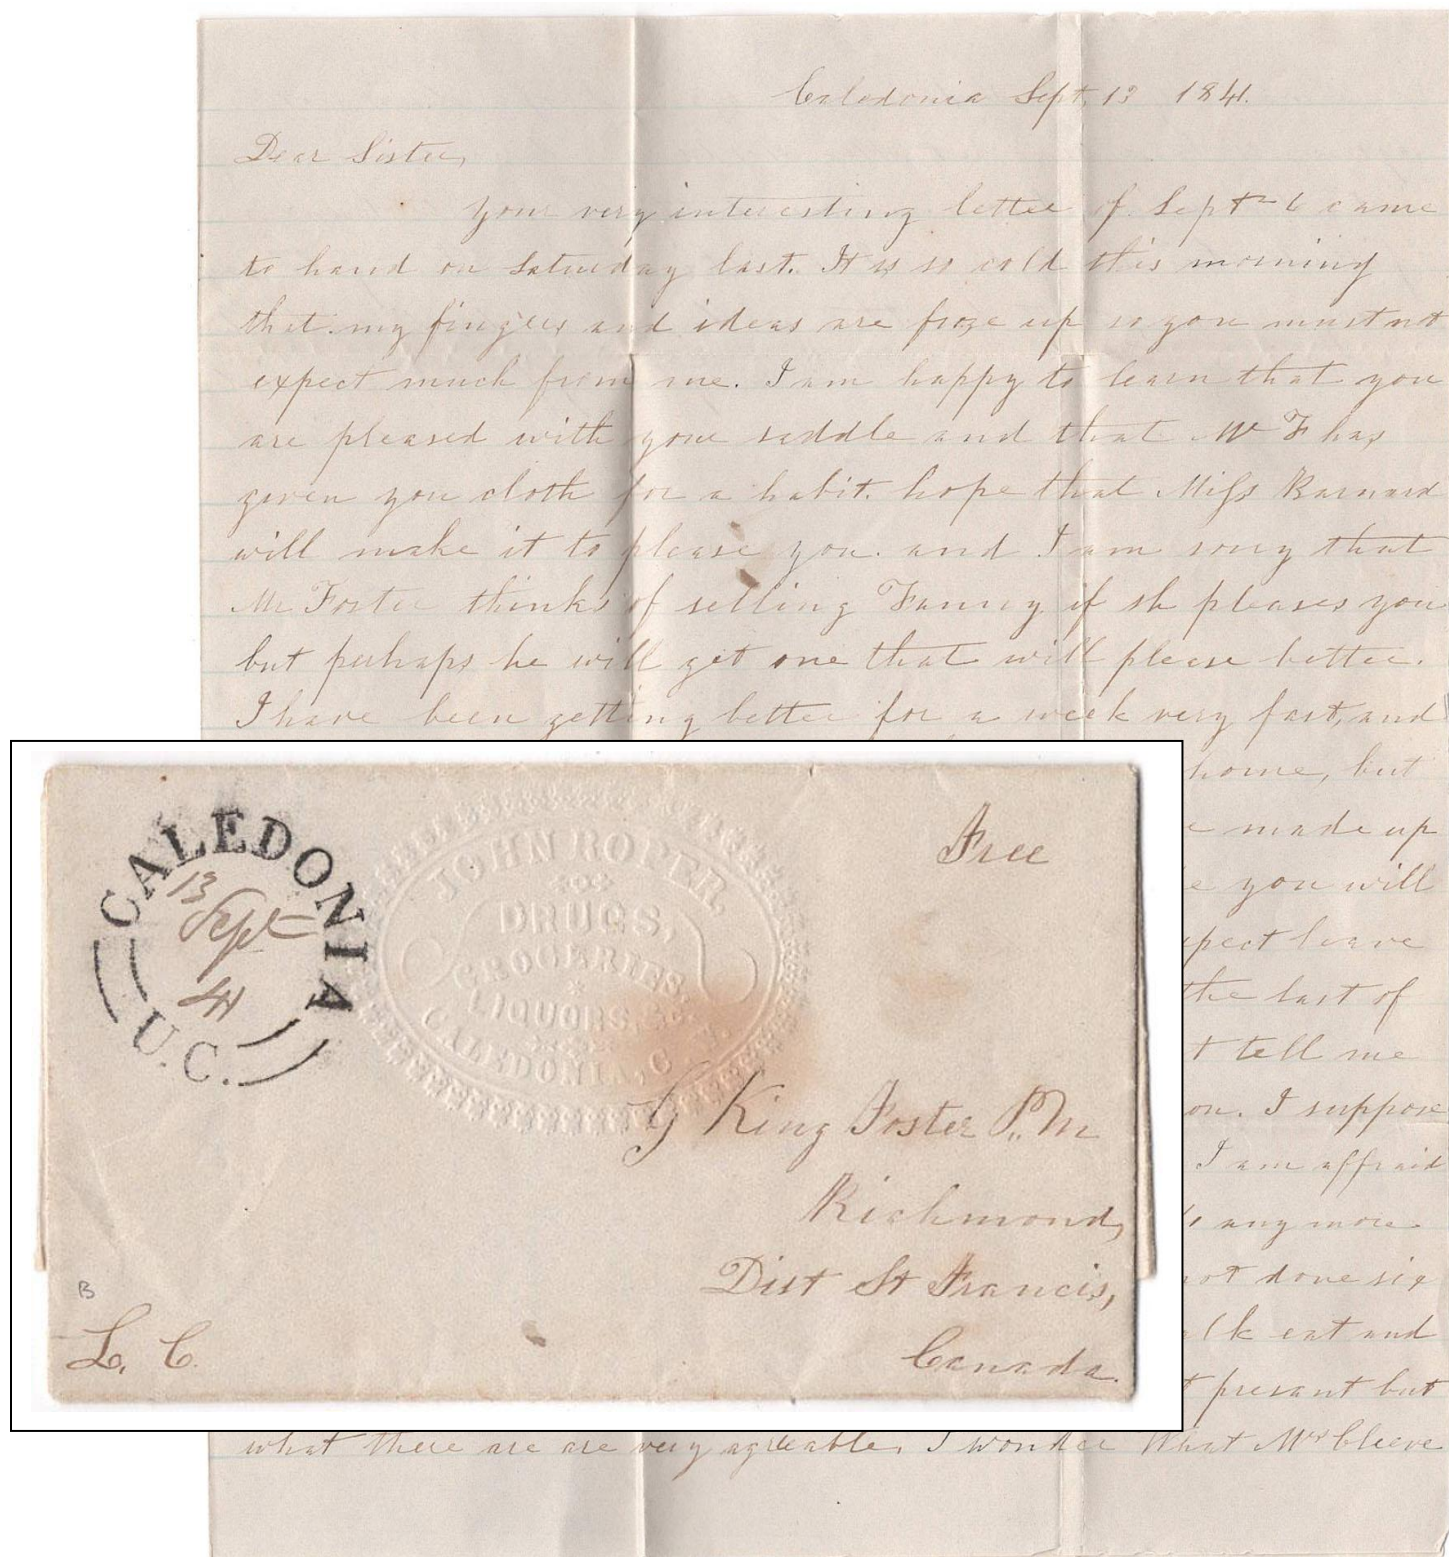 Caledonia Sept. 13 1841.
Dear Sister,
Your very interesting letter of Sept 6 came
to hand on Saturday last. It is so cold this morning
that my fingers and ideas are froze up so you must not
expect much from me. I am happy to learn that you
are pleased with your saddle and that Mr F has
given you cloth for a habit. hope that Miss Barnard
will make it to please you. and I am sorry that
Mr Foster thinks of selling Fanny if sh pleases you
but perhaps he will get one that will please better.
I have been getting better for a week very fast, and
home, but
made up
you will
leave
the last of
tell me
on. I suppose
I am affraid
any more
not done six
eat and
presant but
what there are are very agreable. I wonder What Mrs Cleeve
CALEDONIA
13
Sept
41
U.C.
JOHN ROPER,
DRUGS,
GROCERIES,
LIQUORS, &c
CALEDONIA, C.
Free
G King Foster P.M
Richmond,
Dist St Francis,
Canada.
B
L. C.